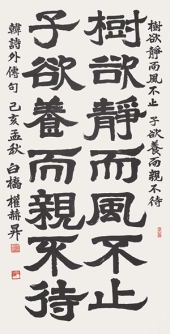 樹欲靜而風不止 子欲養而親不待
樹欲靜而風不止
子欲養而親不待
韓詩外傳句 己亥孟秋 白橋 權赫昇